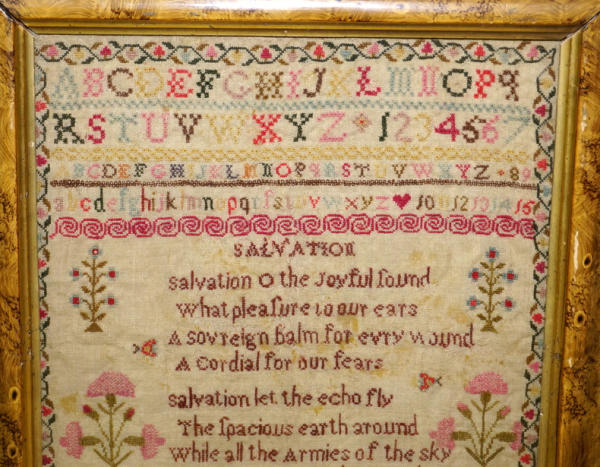 ABCDEFGHIJKLMNOPq
RSTUVWXYZ 1234567
ABCDEFGHIJKLMNOPQRSTUVWXYZ 89
abcdefghijklmnopqrſstuvwxyz 10 11 12 13 14 15
SALVATION
salvation O the Joyful ſound
What pleaſure to our ears
A sovreign Balm for evry wound
A Cordial for our fears
salvation let the echo fly
The ſpacious earth around
While all the Armies of the sky